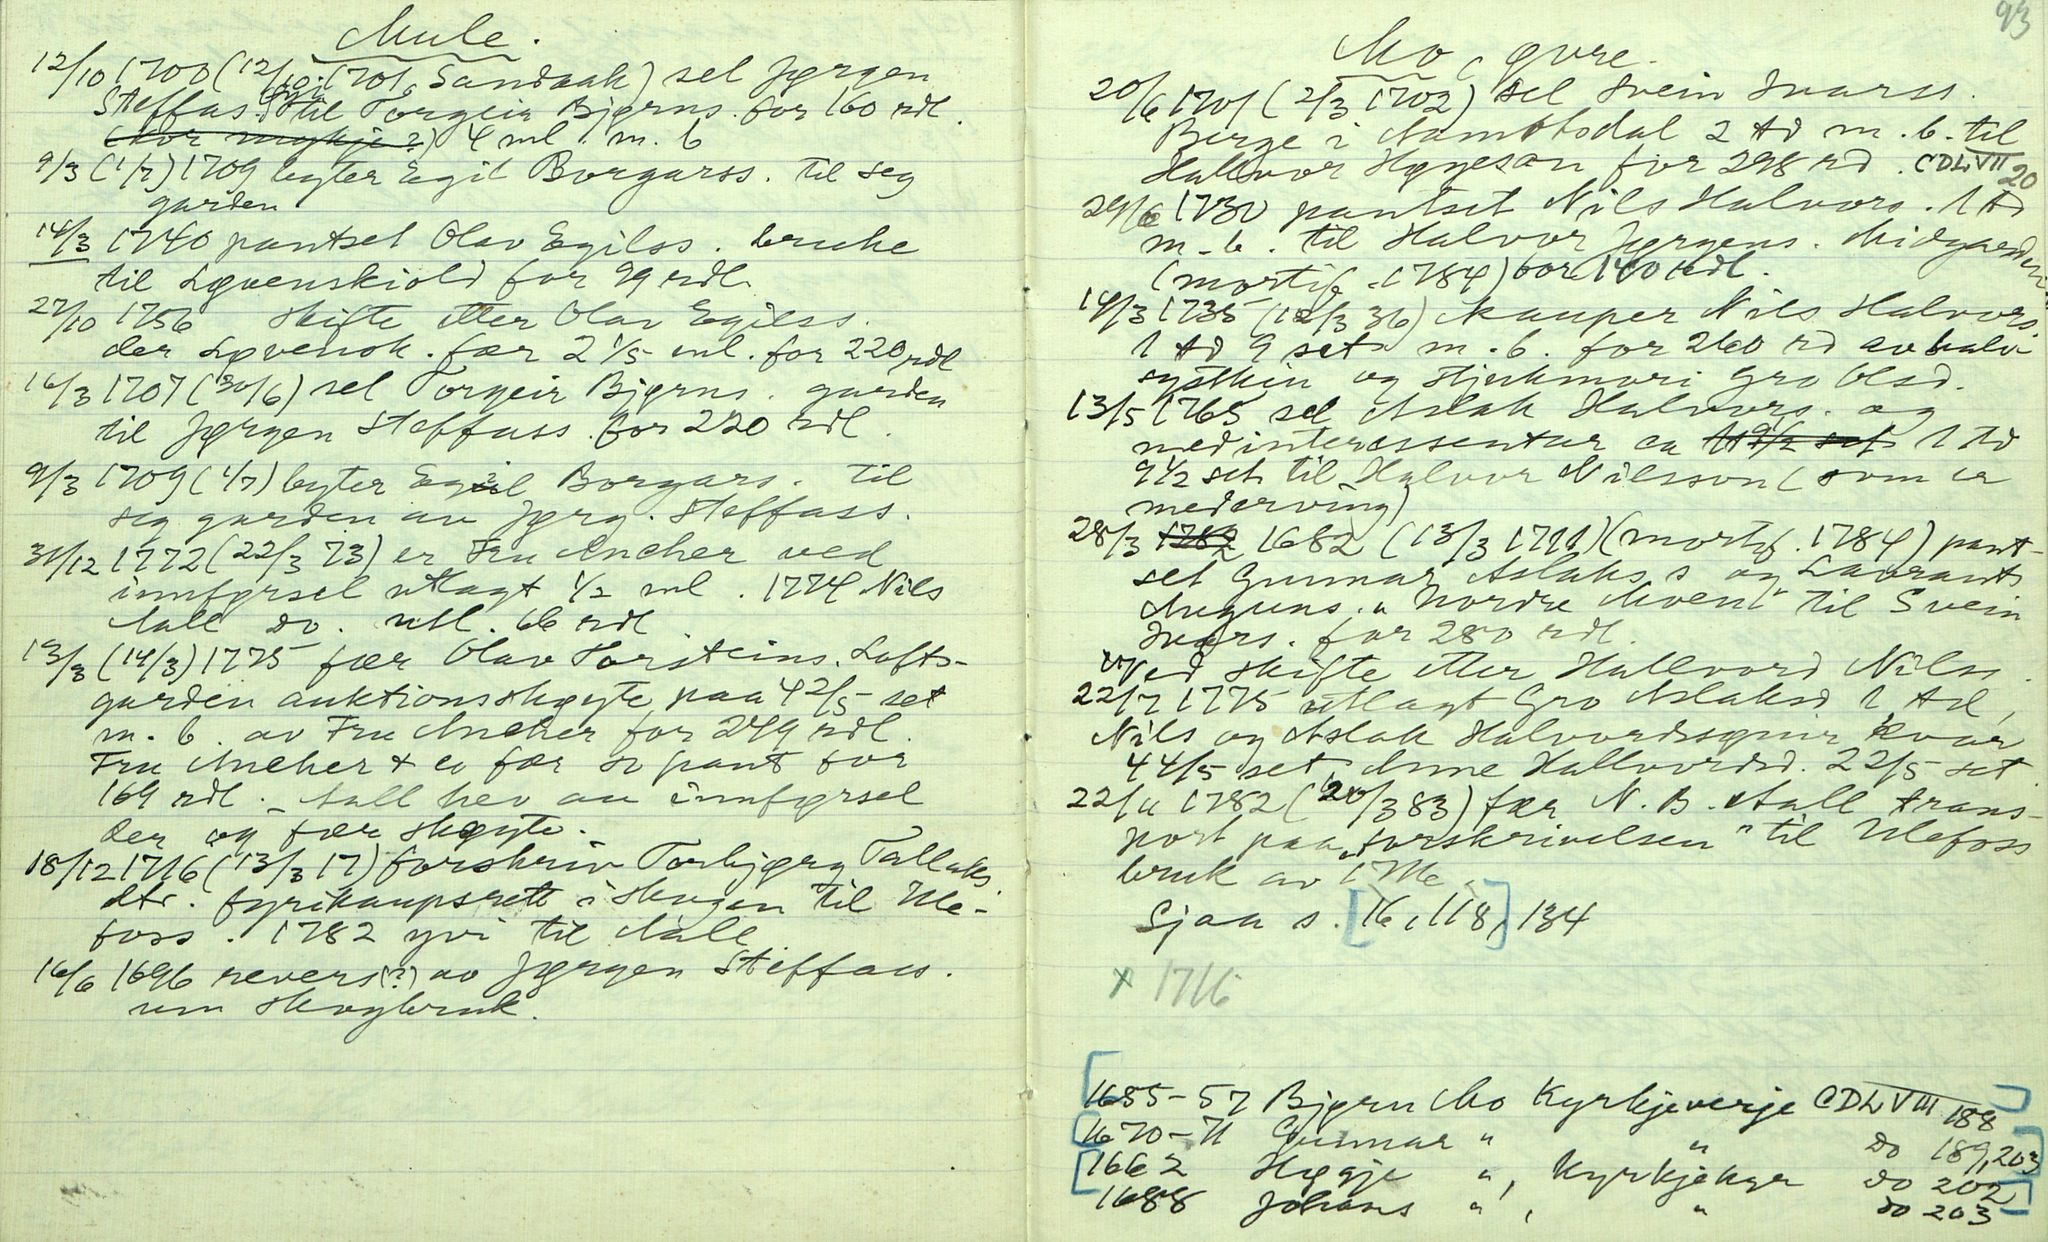 Mule.
12/10 1700 (12/10 1701, Sandaak) sel Jørgen
Steffas. til Torgeir Bjørns. for 160 rdl.
(for mykje?) 4 ml. m. b
9/3 (1/7) 1709 byter Egil Borgarss. til seg
garden
14/3 1740 pantset Olav Egilss. bruke
til Løvenskiold for 99 rdl.
27/10 1756 Skifte etter Olav Egilss.
der Løvensk. fær 2 1/5 ml. for 220 rdl
16/3 1707 (30/6) sel Torgeir Bjørns. garden
til Jørgen Steffass. for 220 rdl.
9/3 1709 (1/7) byter Egil Borgars. til
seg garden av Jørg. Steffass.
31/12 1772 (22/3 73) er Fru Ancher ved
innførsel utlagt 1/2 ml. 1774 Nils
Aall do. utl. 66 rdl
13/3 (14/3) 1775 fær Olav Torsteins. Lofts-
garden auktionsskøyte paa 4 2/5 set
m. b. av Fru Ancher for 249 rdl.
Fru Ancher & co fær so pant for
169 rdl. - Aall hev au innførsel
der og fær skøyte.
18/12 1716 (13/3 17) forskriv Torbjørg Tallaks
dtr. fyrikaupsrett i skogen til Ule-
foss. 1782 yvi til Aall
16/6 1696 revers(?) av Jørgen Steffas.
um skogbruk.
93
Mo, øvre.
20/6 1701 (2/3 1702) sel Svein Ivarss.
Berge i Aamotsdal 2 td m. b. til
Hallvor Høgeson for 298 rd. CDLVII 20
29/6 1730 pantset Nils Halvors. 1 td
m. b. til Halvor Jørgens. Midgarden
(mortif. 1784) for 140 rdl.
14/3 1735 (12/3 36) kauper Nils Halvors.
1 td 9 set m. b. for 260 rd av halv
systkin og stjukmori Gro Olsd.
13/5 1765 sel Aslak Halvors. og
medinteressentar ca 1 td 9 1/2 set 1 td
9 1/2 set til Halvor Nilsson (som er
mederving)
28/3 1782 1682 (13/3 1711) (mortif. 1784) pant-
set Gunnar Aslaks s og Lavrants
Maguns. "Nordre Moen" til Svein
Ivars. for 280 rdl.
Ved skifte etter Hallvord Nilss.
22/7 1775 utlagt Gro Aslaksd 1 td,
Nils og Aslak Halvordssønir kvar
4 4/5 set Anne Hallvordsd. 2 2/5 set
22/11 1782 (20/3 83) fær N. B. Aall trans-
port paa "forskrivelsen" til Ulefoss
bruk av 1716.
Sjaa s. [16, 118], 134
x 1716
[1655-57 Bjørn Mo Kyrkjeverje CDLVIII 188]
[1670-71 Gunnar " " do 189, 203]
[1662 Høgje ", Kyrkjekyr do 202]
1688 Johans ", " do 203